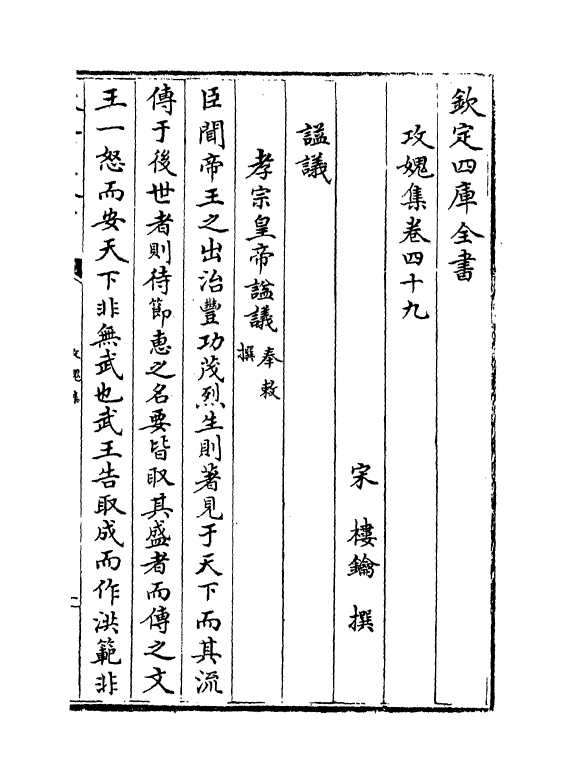 欽定四庫全書
攻媿集卷四十九
宋 樓鑰 撰
諡議
孝宗皇帝諡議奉敕撰
臣聞帝王之出治豐功茂烈生則著見于天下而其流
傳于後世者則待節惠之名要皆取其盛者而傳之文
王一怒而安天下非無武也武王告取成而作洪範非
攻媿集